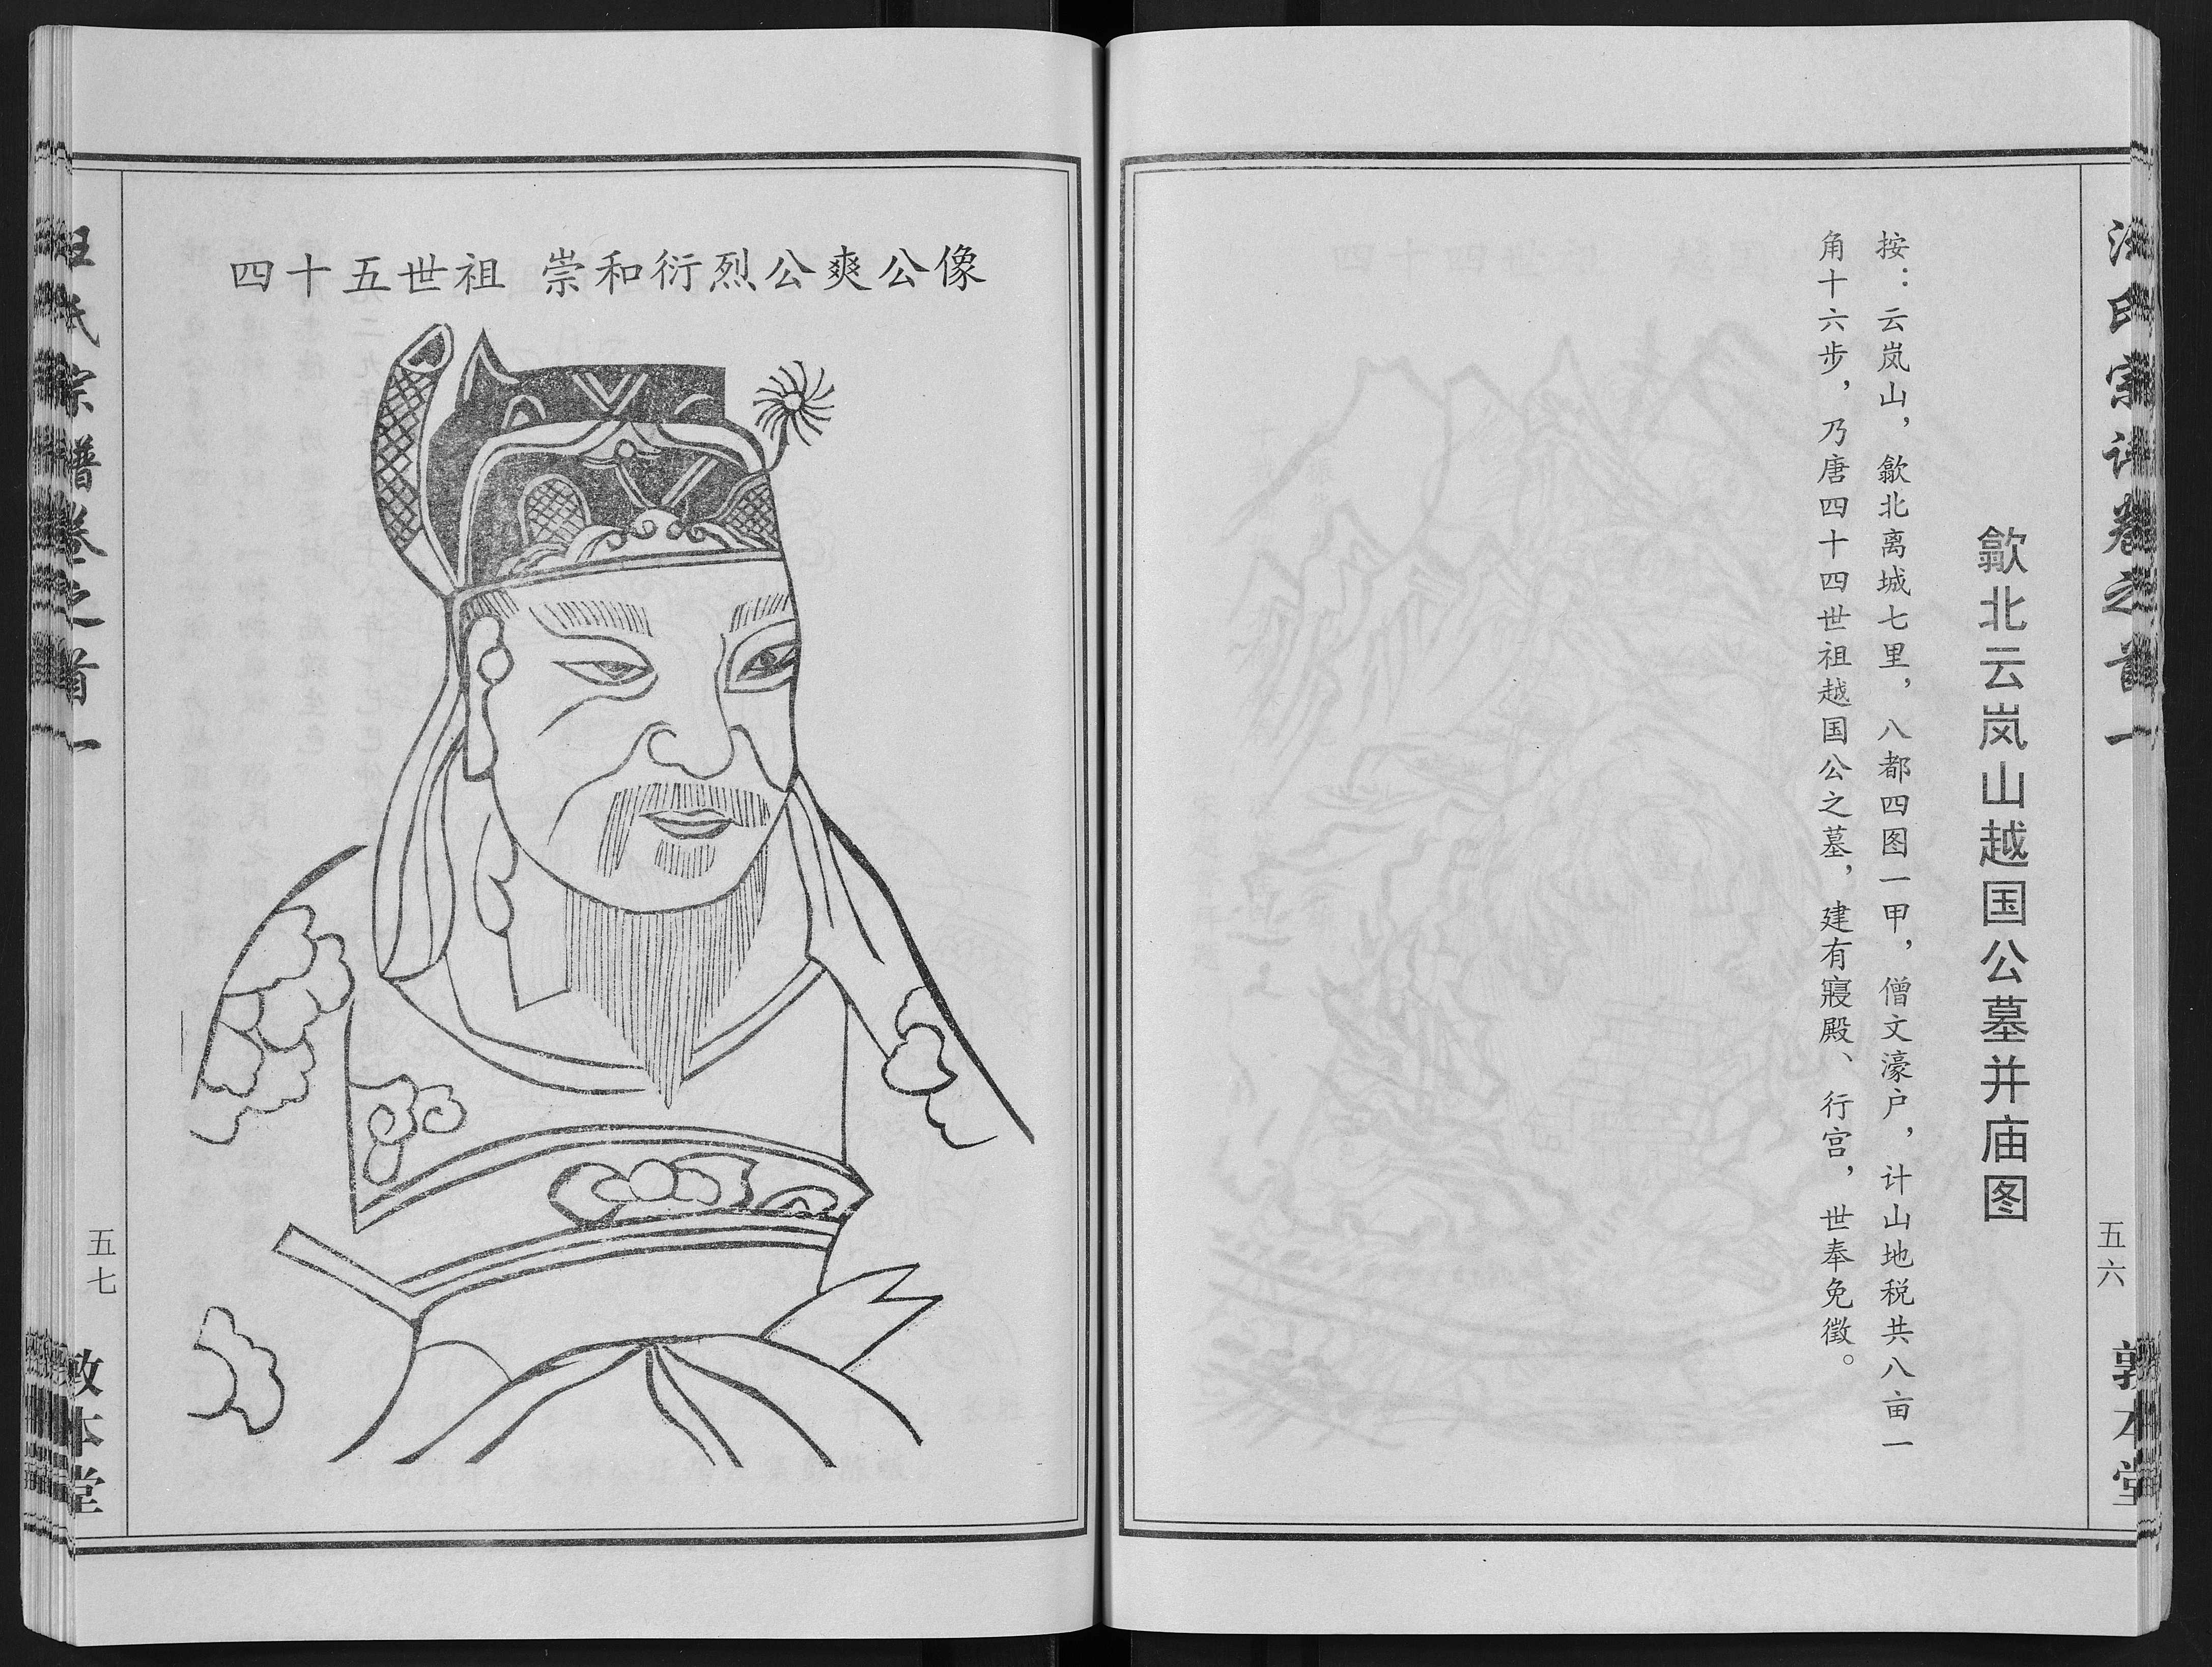 汪氏宗谱卷之首一
五六
敦本堂
歙北云岚山越国公墓并庙图
按：云岚山，歙北离城七里，八都四图一甲，僧文濠户，计山地税共八亩一
角十六步，乃唐四十四世祖越国公之墓，建有寢殿、行宫，世奉免徵。
四十五世祖 崇和衍烈公爽公像
汪氏宗谱卷之首一
五七
敦本堂